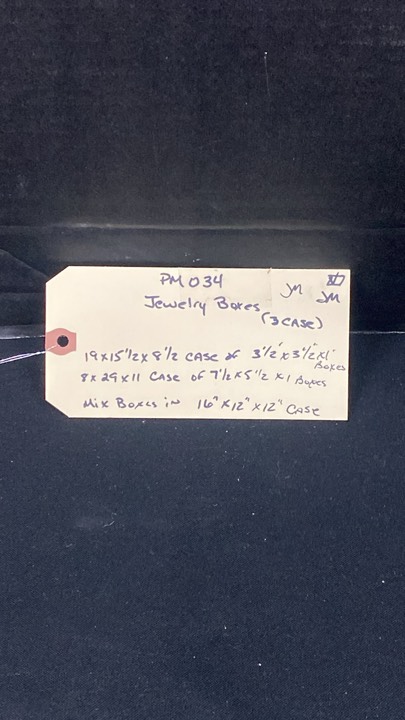 PM034
JM
JM
Jewelry Boxes
(3 CASE)
19x15 1/2 x 8 1/2 CASE of 3 1/2" x 3 1/2" x 1" Boxes
8x29x11 CASE of 7 1/2 x 5 1/2 x 1 Boxes
Mix Boxes in 16" x 12" x 12" CASE